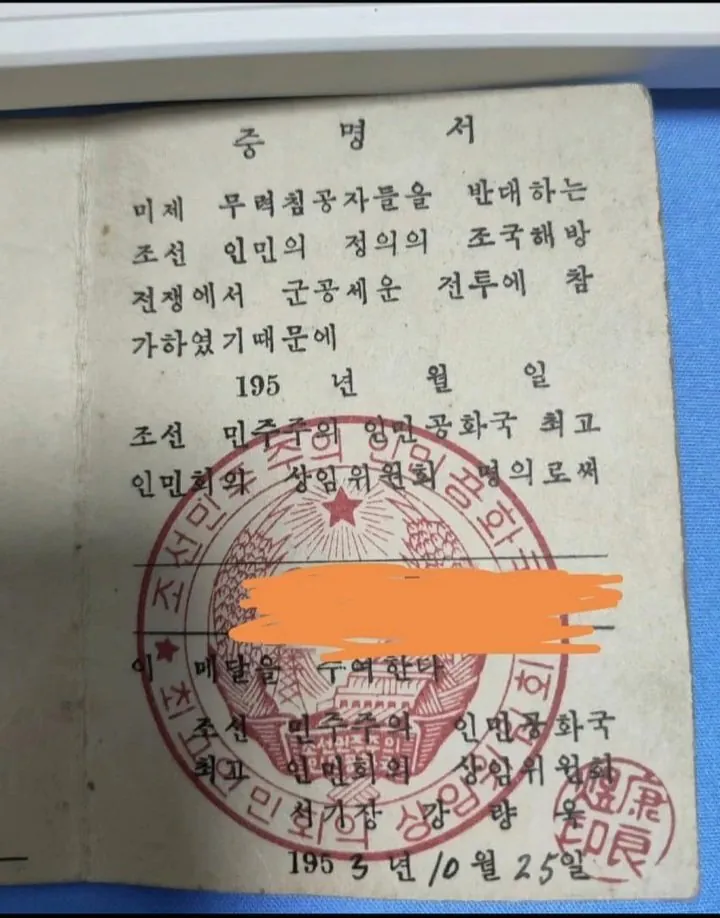 증 명 서
미제 무력침공자들을 반대하는
조선 인민의 정의의 조국해방
전쟁에서 군공세운 전투에 참
가하였기때문에
195 년 월 일
조선 민주주의 인민공화국 최고
인민회의 상임위원회 명의로써
이 메달을 수여한다
조선 민주주의 인민공화국
최고 인민회의 상임위원회
서기장 강 량 욱
1953년 10월 25일
조선민주주의인민공화국
최고인민회의 상임위원회
조선민주주의
康良煜印